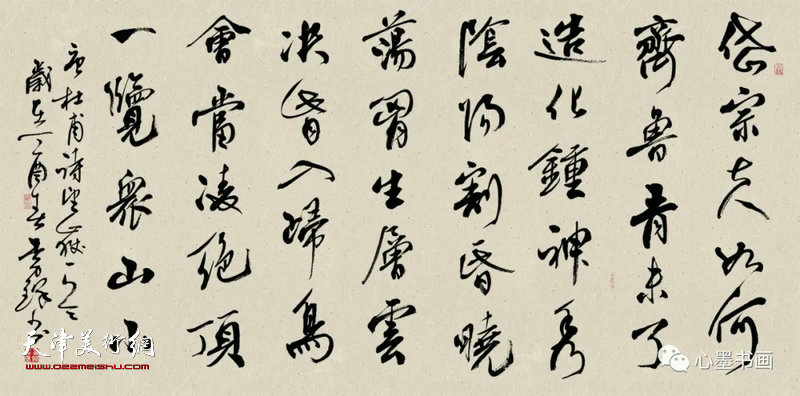 岱宗夫如何
齊魯青未了
造化鍾神秀
陰陽割昏曉
蕩胸生層雲
決眥入歸鳥
會當淩絕頂
一覽眾山小
唐杜甫詩望嶽一首
歲在丁酉春
書
天津美術網
www.022meishu.com
心墨书画